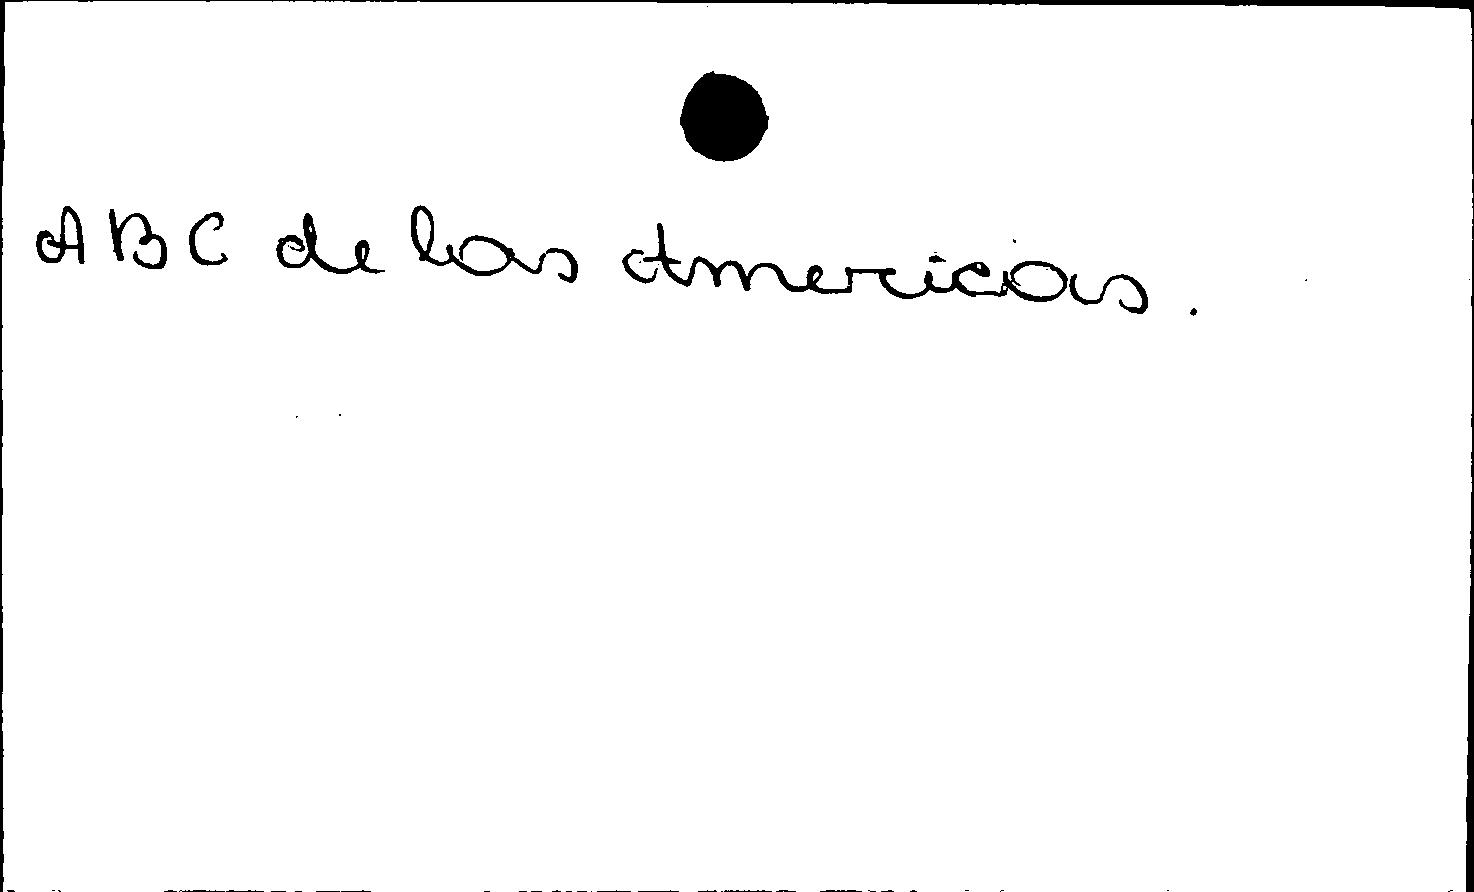 ABC de las Americas.